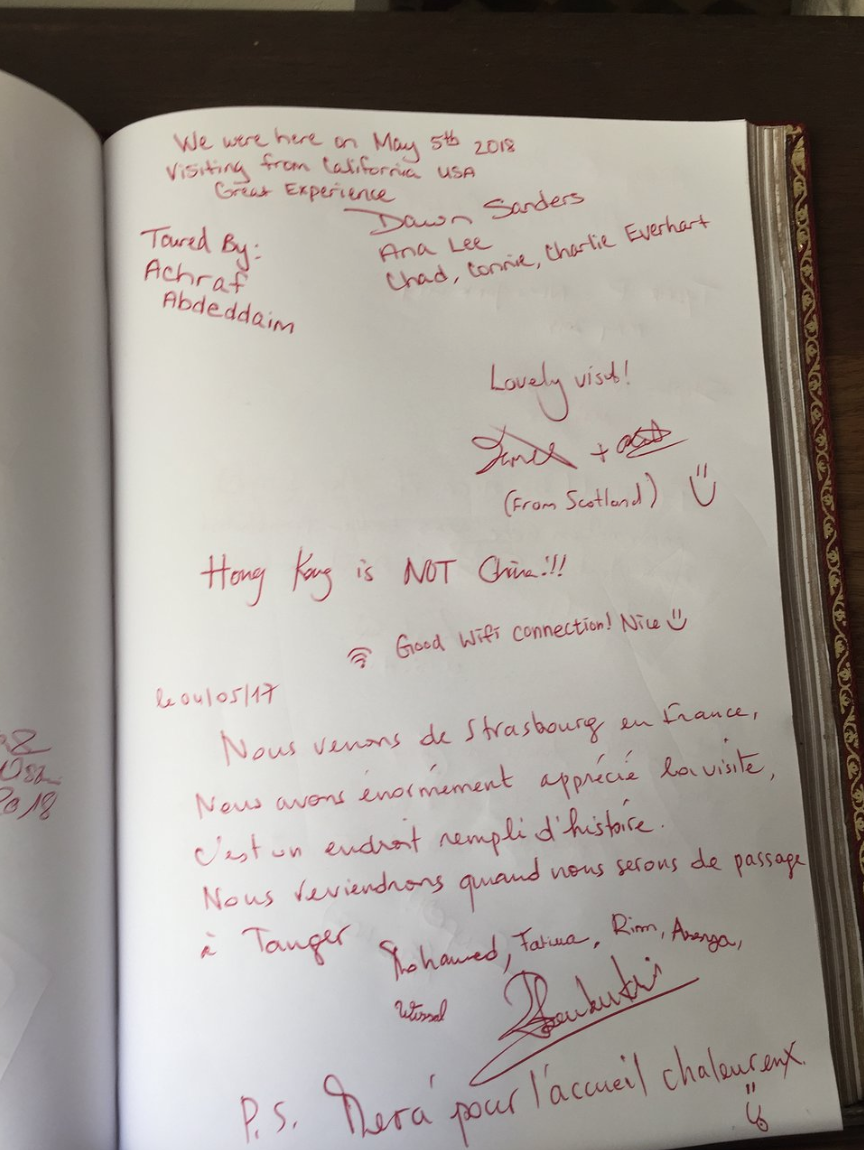 We were here on May 5th 2018
Visiting from California USA
Great Experience
Dawn Sanders
Ana Lee
Chad, Connie, Charlie Everhart
Toured By:
Achraf
Abdeddaim
Lovely visit!
+
(From Scotland)
Hong Kong is NOT China!!!
Good Wifi connection! Nice
le 04/05/17
Nous venons de Strasbourg en France,
Nous avons énormément apprécié la visite,
c'est un endroit rempli d'histoire.
Nous reviendrons quand nous serons de passage
à Tanger
Mohamed, Fatima, Rim,
P.S. Merci pour l'accueil chaleureux.
2018